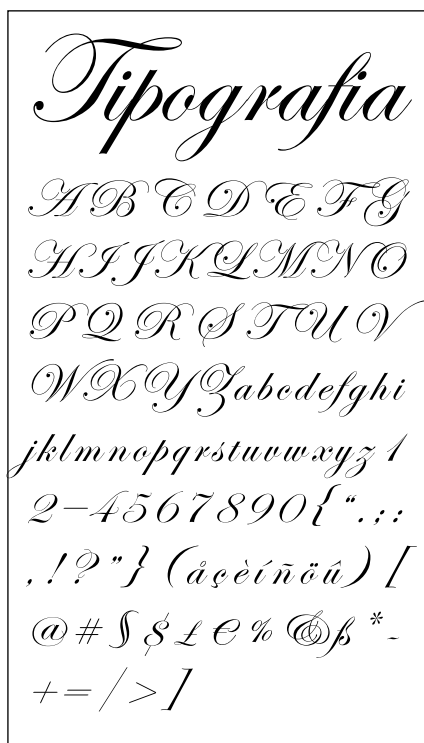 Tipografia
ABCDEFG
HIJKLMNO
PQRSTUV
WXYZabcdefghi
jklmnopqrstuvwxyz1
2–4567890{“.;:
,!?”}(åçèíñöû)[
@#§$£€%&ß*-
+=/>]